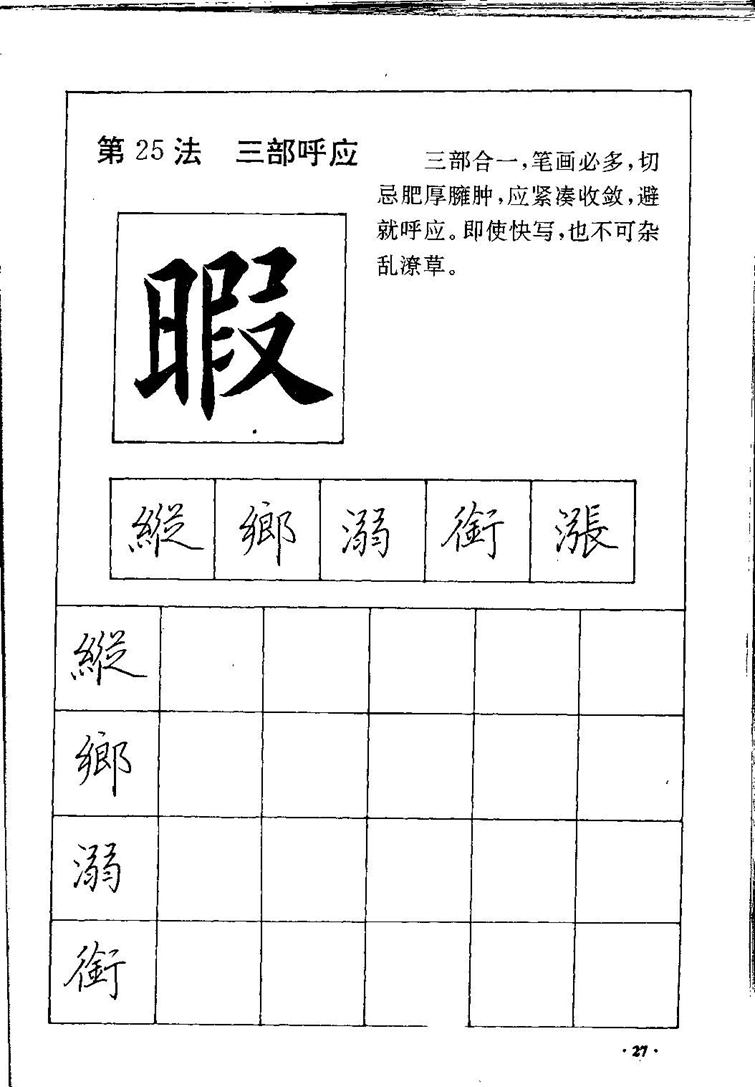 第25法 三部呼应
三部合一，笔画必多，切
忌肥厚臃肿，应紧凑收敛，避
就呼应。即使快写，也不可杂
乱潦草。
暇
縱 鄉 溺 銜 漲
縱
鄉
溺
銜
·27·